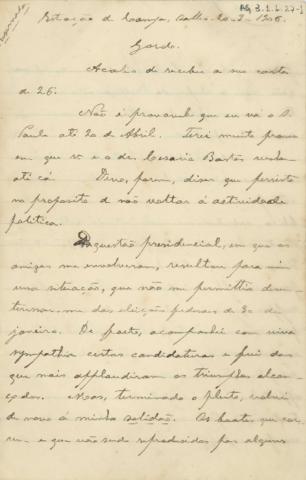 AG 3.1.6.27-1
Estação de Campo Salles 20-3-1906.
Gordo.
Acabo de receber a sua carta
de 26.
Não é provavel que eu vá a S.
Paulo até 20 de Abril. Terei muito prazer
em que v. e o dr. Cesario Bastos venham
até cá. Devo, porem, dizer que persisto
no proposito de não voltar á actividade
politica.
Da questão presidencial, em que os
amigos me envolveram, resultou para mim
uma situação, que não me permittia desin-
teressar-me das eleições federaes de 30 de
janeiro. De facto, acompanhei com viva
sympathia certas candidaturas e fui dos
que mais applaudiram os triumphos alcan-
çados. Mas, terminado o pleito, voltei
de novo á minha solidão. Os boatos que cor-
rem e que vão sendo reproduzidos por alguns